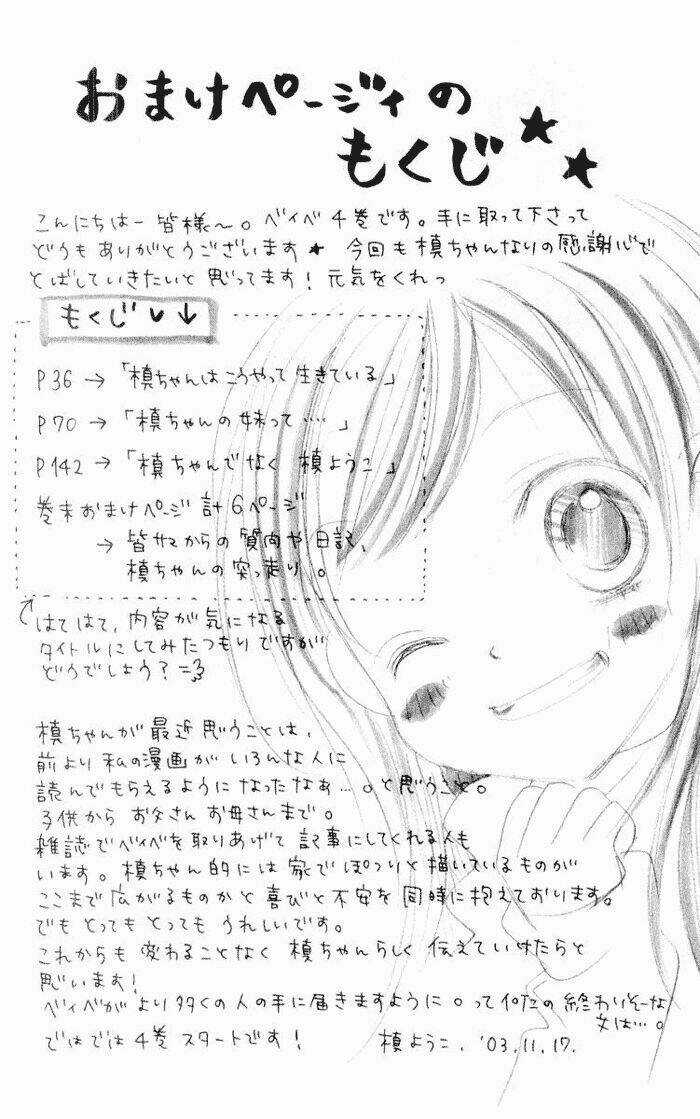 おまけページィの
もくじ★★
こんにちはー皆様〜。ベイベ4巻です。手に取って下さって
どうもありがとうございます★ 今回も槙ちゃんなりの感謝心で
とばしていきたいと思ってます!元気をくれっ
もくじ♥↓
P36→「槙ちゃんはこうやって生きている」
P70→「槙ちゃんの妹って‥‥」
P142→「槙ちゃんでなく 槙ようこ」
巻末おまけページ 計6ページ
→ 皆サマからの質問や日記、
槙ちゃんの突っ走り。
はてはて、内容が気になる
タイトルにしてみたつもりですが
どうでしょう?
槙ちゃんが最近思うことは、
前より私の漫画がいろんな人に
読んでもらえるようになったなぁ…。と思うこと。
子供からお父さんお母さんまで。
雑誌でベイベを取りあげて記事にしてくれる人も
います。槙ちゃん的には家でぽつりと描いているものが
ここまで広がるものかと喜びと不安を同時に抱えております。
でもとってもとってもうれしいです。
これからも変わることなく 槙ちゃんらしく伝えていけたらと
思います!
ベイベがより多くの人の手に届きますように。って10代の終わりそーな
女は…。
ではでは4巻スタートです!
槙ようこ. '03.11.17.